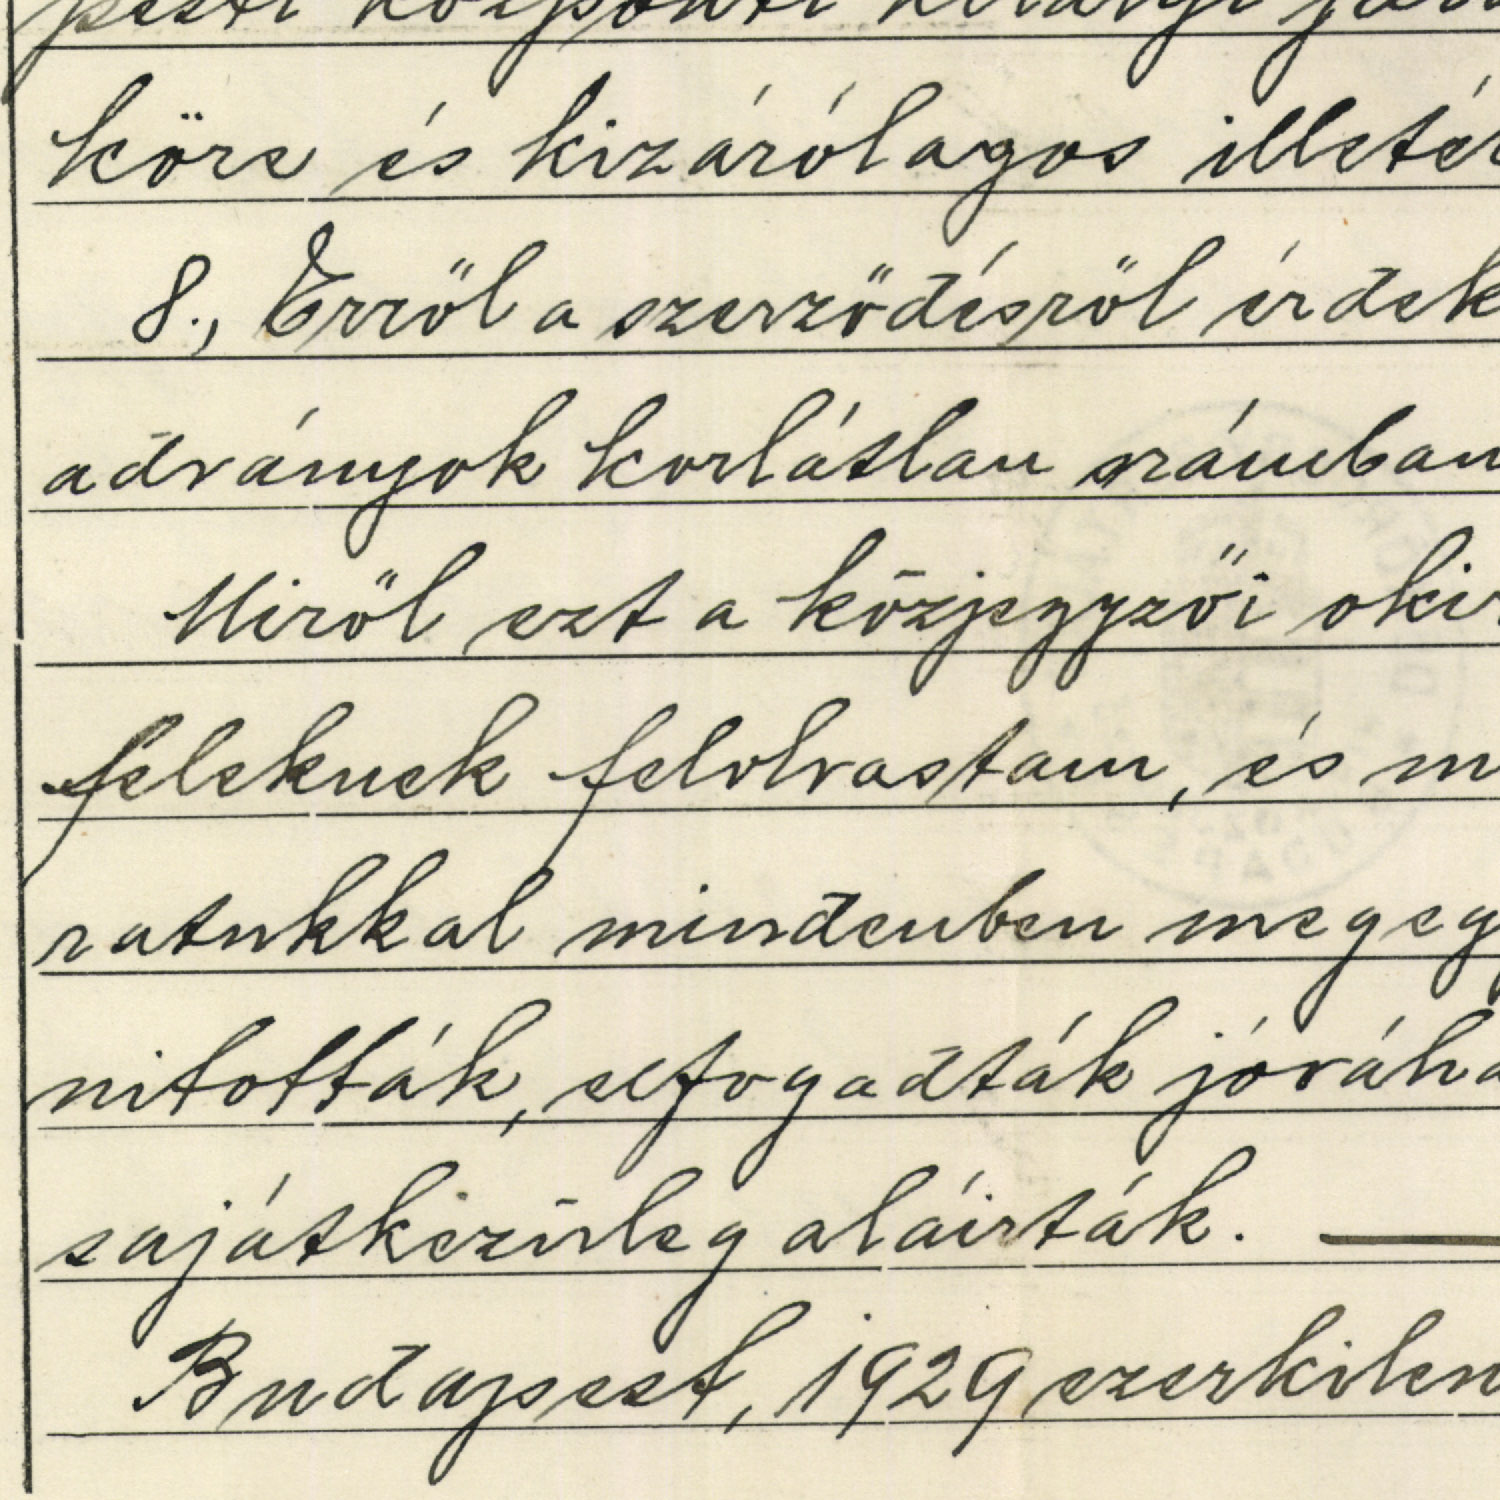 pesti központi királyi já
köre és kizárólagos illeté
8., Erről a szerződésről érdek
adványok korlátlan számban
Miről ezt a közjegyzői okir
feleknek felolvastam, és m
ratukkal mindenben megegy
nitották, elfogadták jóváha
sajátkezüleg aláirták.
Budapest, 1929 ezerkilen